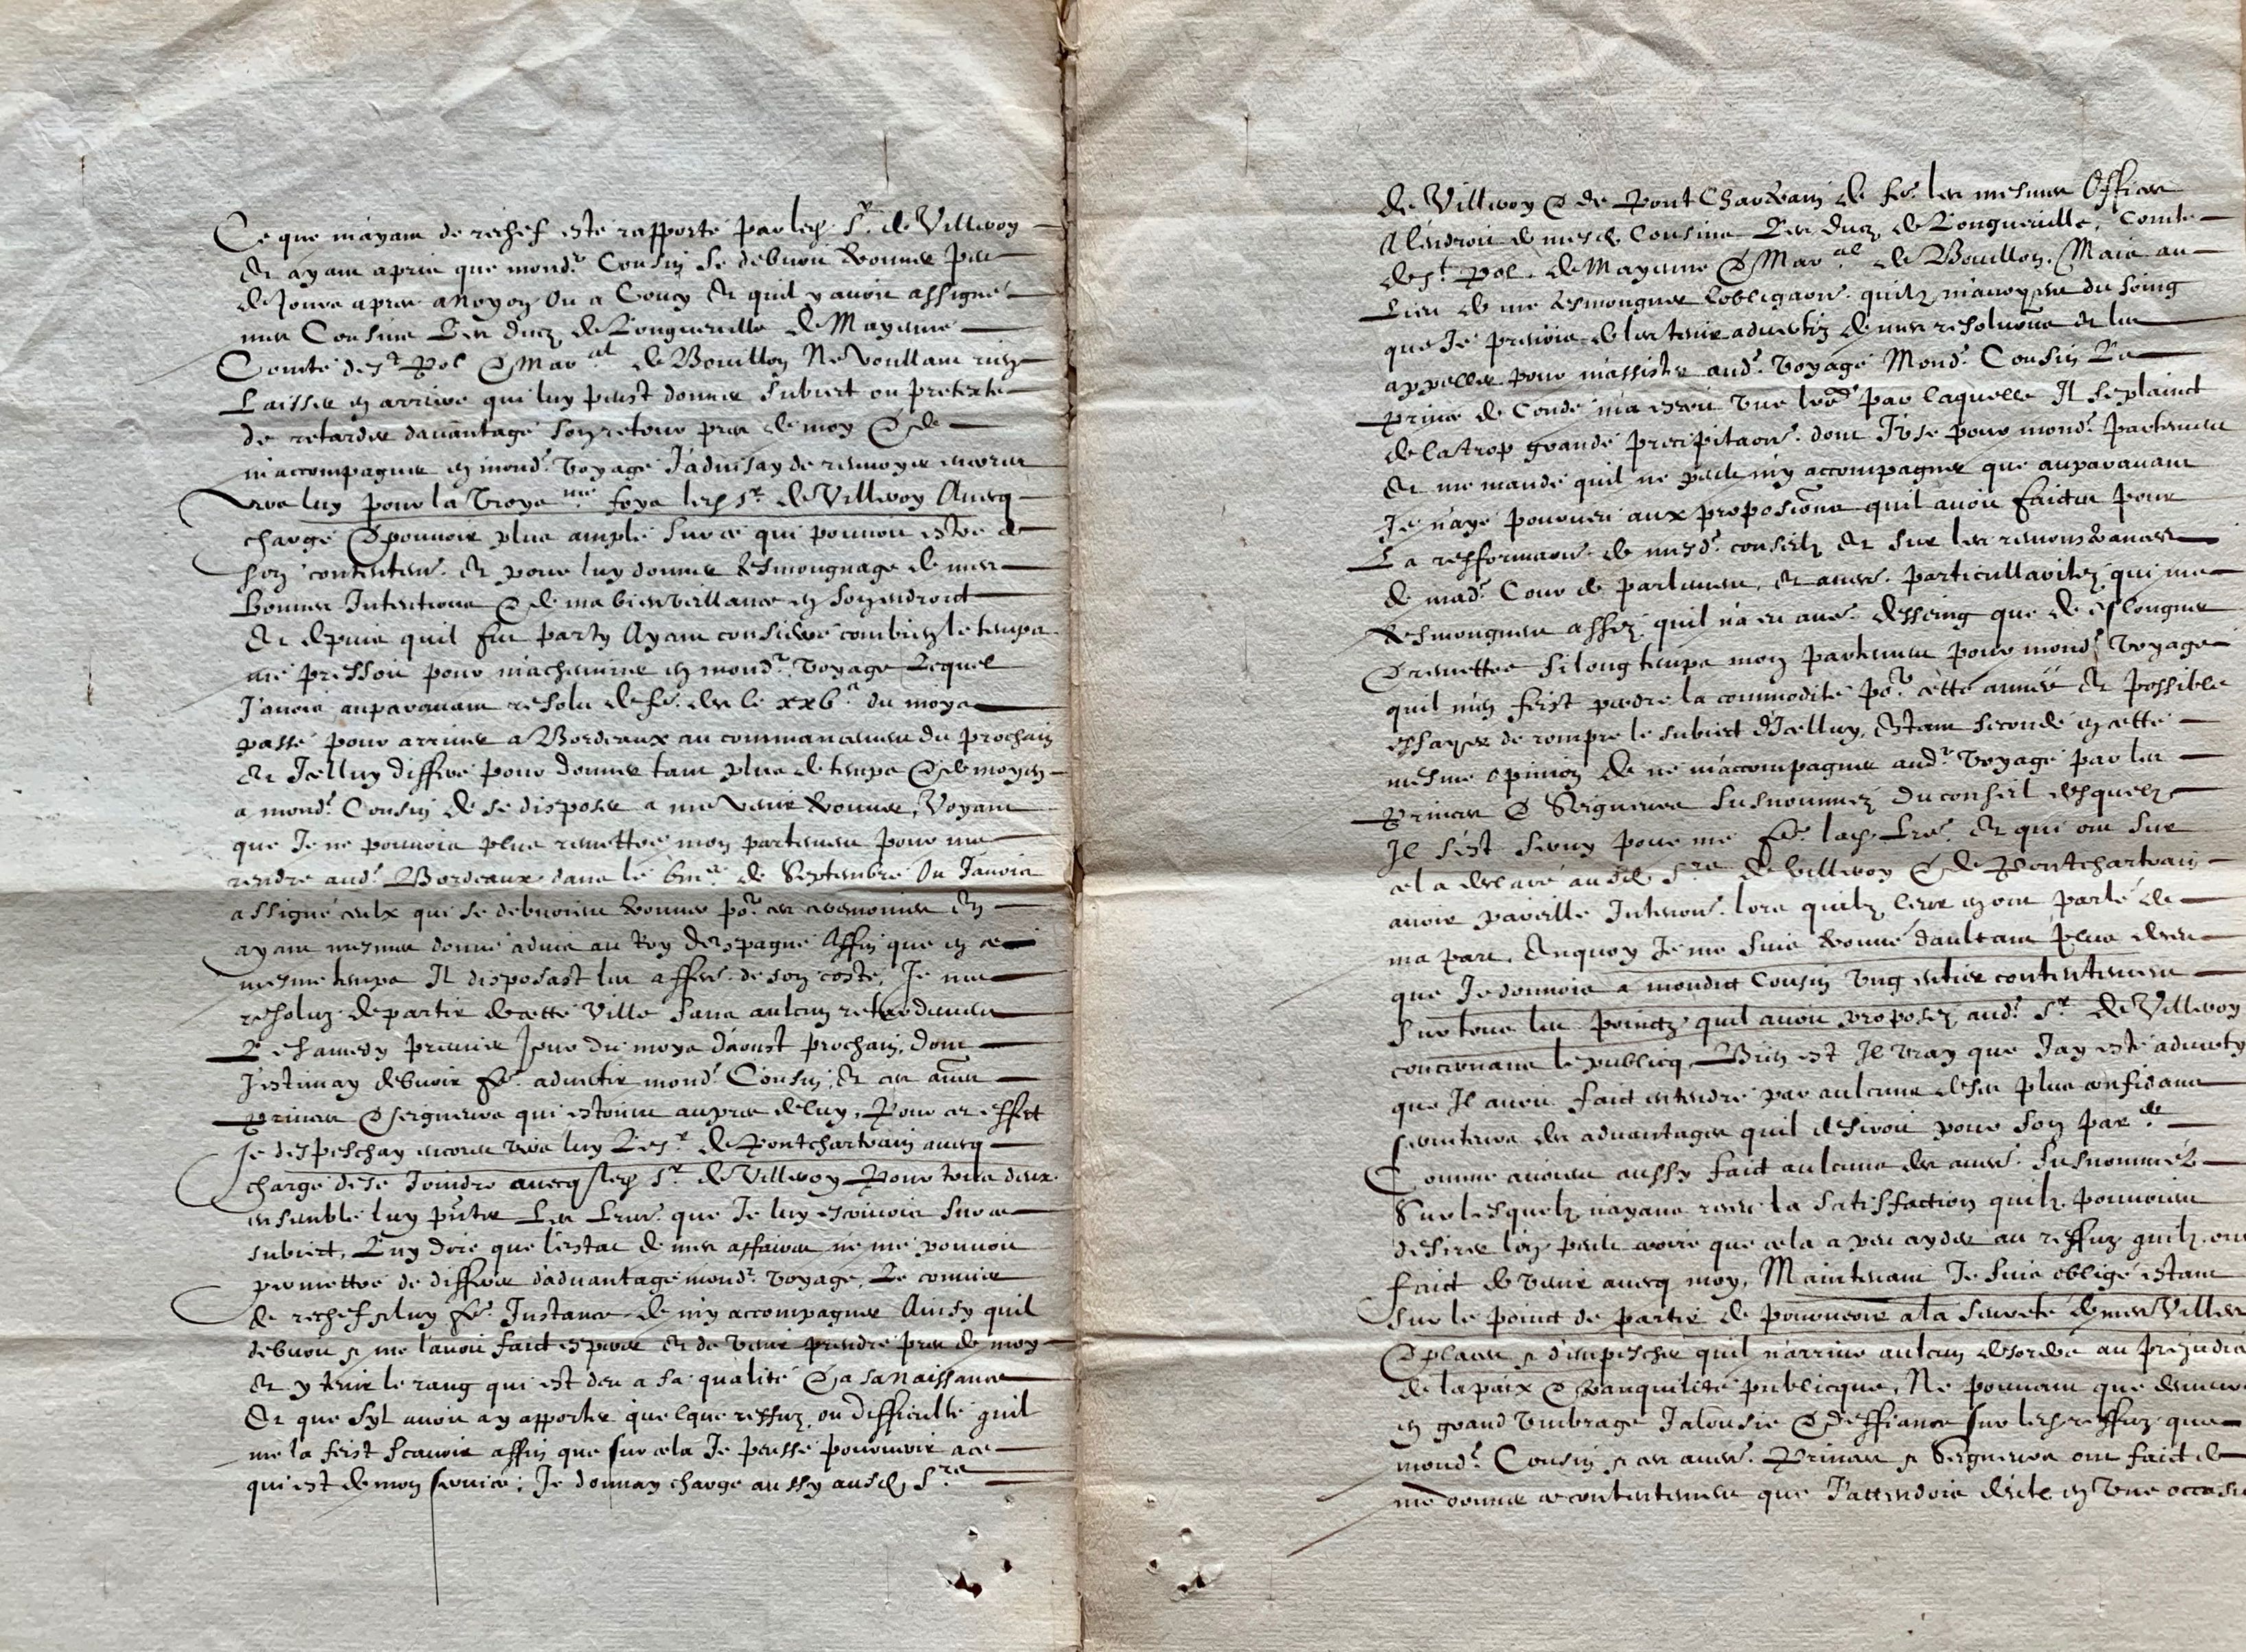 Ce que m'ayant de rechef esté rapporté par led. Sr. de Villeroy
Et ayant apris que mond. Cousin se debvoit trouver peu
de jours apres a Noyon ou a Coucy Et quil y avoit assigné
mes Cousins Les ducz de Longueville de Mayenne
Comte de St Pol & Maral de Bouillon Ne voullant rien
Laisser en arriere qui luy peust donner subiect ou pretexte
de retarder davantage son retour pres de moy & de
m'accompagner en mond. voyage J'advisay de renvoyer encores
vers luy pour la troysme foys led. Sr. de Villeroy Avecq
charge & pouvoir plus ample sur ce qui pouvoit estre de
son contentemt. Et pour luy donner tesmoignage de mes
bonnes Intentions & de ma bienveillance en son endroict
Et depuis quil fut party Ayant consideré combien le temps
me pressoit pour m'acheminer en mond. voyage Lequel
J'avois auparavant resolu de fe. des le xxve. du moys
passé pour arriver a Bordeaux au commancement du prochain
Et Icelluy differé pour donner tant plus de temps & de moyen
a mond. Cousin de se disposer a me venir trouver, Voyant
que Je ne pouvois plus remettre mon partement pour me
rendre aud. Bordeaux dans le de Septembre Ou Javois
assigné ceulx que se debvoient trouver por. ces ceremonies Et
ayant mesmes donné advis au Roy despagne Affin que en ce
mesme temps Il disposast les affes. de son costé, Je me
resoluz de partir de cette Ville sans aulcun retardement
Le samedy premier jour du moys d'aoust prochain, dont
J'estimay debvoir fe. advertir mond. Cousin, Et ces aues
Princes & seigneurs qui estoient aupres de luy, Pour cet effect
Je despeschay encores vers luy Le Sr. de Pontchartrain avecq
charge de se Joindre avecq led. Sr. de Villeroy Pour tous deux
ensemble luy pnter Les Lres. que Je luy escrivois sur ce
subiect, Luy dire que l'estat de mes affaires ne me pouvoit
permettre de differer d'advantage mond. voyage, Le convier
de rechef & luy fe. Instance de m'y accompagner Ainsy quil
debvoit & me l'avoit faict esperer Et de venir prendre pres de moy
Et y tenir le rang qui est deu a sa qualité & a sa naissance
Et que syl avoit a y apporter quelque reffuz ou difficulté quil
me la feist scavoir affin que sur cela Je peusse pourvoir a ce
qui est de mon service; Je donnay charge aussy ausd. Srs
de Villeroy & de Pont Chartrain de fe. les mesmes Offices
A l'endroit de mesd. Cousins Les Ducz de Longueville, Comte
de St. Pol de Mayenne & Maral de Bouillon. Mais au
Lieu de me tesmoigner l'obligaon. quilz m'avoyent du soing
que Je prenois de les tenir advertiz de mes resolutions et les
appeller pour m'assister aud. voyage Mond. Cousin Le
Prince de Condé m'a escrit une lre. par laquelle Il se plainct
de la trop grande precipitaon. dont J'use pour mond. partement
Et me mande quil ne peult m'y accompagner que auparavant
Je n'aye pourveu aux propositions quil avoit faictes pour
La refformaon. de mesd. conseilz et sur les remonstrances
de mad. Cour de parlement, et aues. particullaritez qui me
tesmoignent assez quil n'a eu aue. desseing que de eslongner
& remettre si long temps mon partement pour mond. voyage
quil m'en feist perdre la commodité por. cette année et possible
essayer de rompre le subiect d'Icelluy, Estant secondé en cette
mesme opinion de ne m'accompagner aud. voyage par les
Princes & Seigneurs susnommez du conseil desquelz
Il s'est servy pour me fe. lad. Lre. et qui ont sur
cela declaré ausd. Srs. de Villeroy & de Pontchartrain
avoir pareille Intenon. lors quilz leur en ont parlé de
ma part, Enquoy Je me suis trouvé daultant plus deceu
que Je donnois a mondict Cousin ung entier contentement
sur tous les poinctz quil avoit proposez aud. Sr. de Villeroy
concernant le publicq Bien est Il vray que Jay esté adverty
que Il avoit faict entendre par aulcuns de ses plus confidans
serviteurs des advantages quil desiroit pour son par
Comme avoient aussy faict aulcuns des aues. susnommez
Sur lesquelz n'ayans receu la satisfaction quilz pouvoient
desirer l'on peult croire que cela a peu ayder au reffuz quilz ont
faict de venir avecq moy, Maintenant Je suis obligé estant
sur le poinct de partir de pourveoir a la seureté de mes Villes
& places & d'empescher quil n'arrive aulcun desordre au prejudice
de la paix & tranquilité publicque, Ne pouvant que demeurer
en grand umbrage Jalousie & deffiance sur led. reffuz que
mond. Cousin & ces aues. Princes & Seigneurs ont faict de
me donner ce contentement que J'attendois d'eulx en une occasi